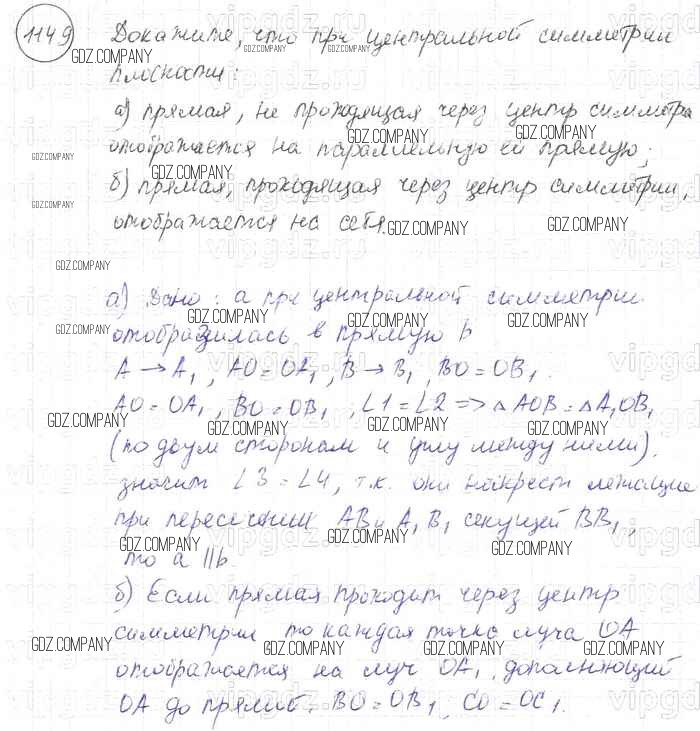 1149 Докажите, что при центральной симметрии
плоскости:
а) прямая, не проходящая через центр симметри
отображается на параллельную ей прямую;
б) прямая, проходящая через центр симметрии,
отображается на себя.
а) Дано: a при центральной симметрии
отобразилась в прямую b
A → A₁, AO = OA₁, B → B₁, BO = OB₁.
AO = OA₁, BO = OB₁, ∠1 = ∠2 => △ AOB = △ A₁OB₁
(по двум сторонам и углу между ними),
значит ∠3 = ∠4, т.к. они накрест лежащие
при пересечении AB и A₁B₁ секущей BB₁,
то a || b.
б) Если прямая проходит через центр
симметрии то каждая точка луча OA
отображается на луч OA₁, дополняющий
OA до прямой. BO = OB₁, CO = OC₁.